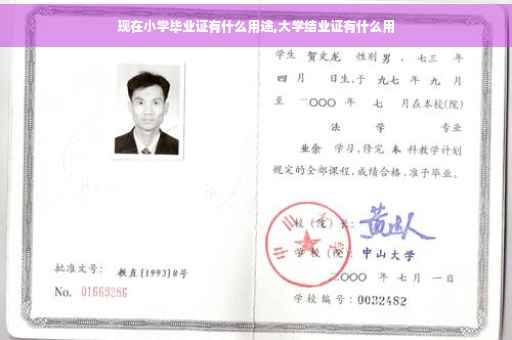 现在小学毕业证有什么用途,大学结业证有什么用
学生 贺文龙 性别 男 、七三 年
四 月 日生,于 九七 年 九 月
至 二〇〇〇 年 七 月在本校(院)
法 学 专业
业余 学习,修完 本 科教学计划
规定的全部课程,成绩合格,准予毕业。
校(院)长:
学 校(院): 中山大学
二〇〇〇 年 七 月 一 日
学校编号: 0032482
批准文号: 教直[1993]8号
No. 01669286